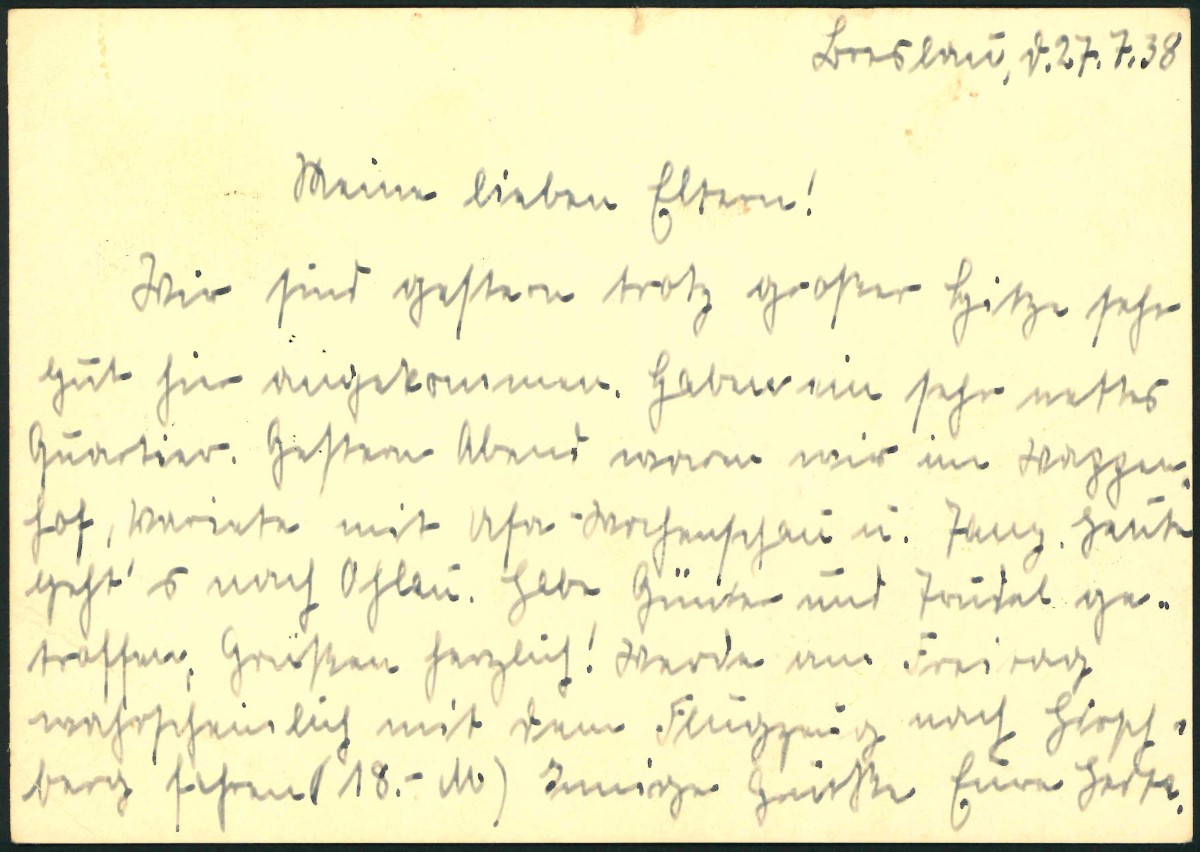 Breslau, d. 27.7.38
Meine lieben Eltern!
Wir sind gestern trotz großer Hitze sehr
gut hier angekommen. Haben ein sehr nettes
Quartier. Gestern Abend waren wir im Wappen-
hof, Variete mit Ufa-Wochenschau u. Tanz. Heute
geht's nach Ohlau. Habe Günter und Trudel ge-
troffen, Grüßen herzlich! Werde am Freitag
wahrscheinlich mit dem Flugzeug nach Hirsch-
berg fahren (18.- M) Innige Grüße Eure Herta.